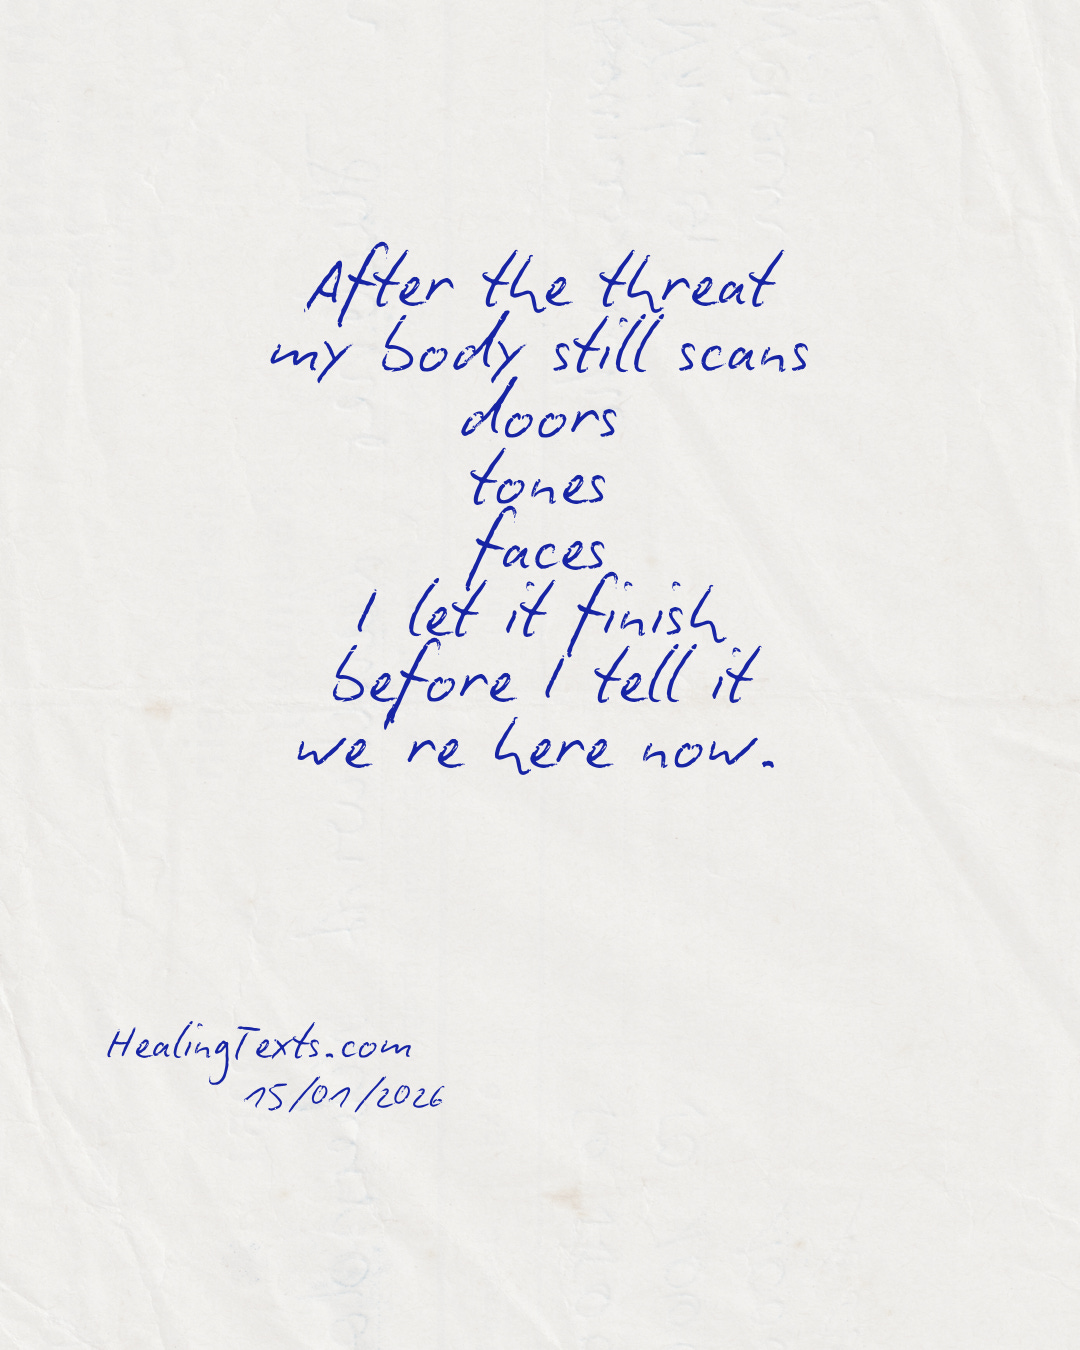 After the threat
my body still scans
doors
tones
faces
I let it finish
before I tell it
we re here now.
HealingTexts.com
15/01/2026